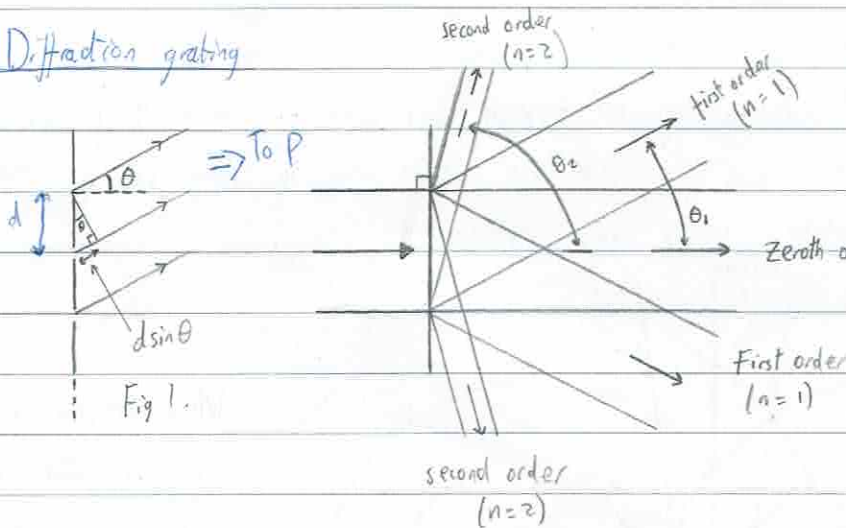 Diffraction grating
θ
⇒ To P
d
θ
d sinθ
Fig 1.
second order
(n=2)
first order
(n=1)
θ₂
θ₁
Zeroth o
First order
(n=1)
second order
(n=2)